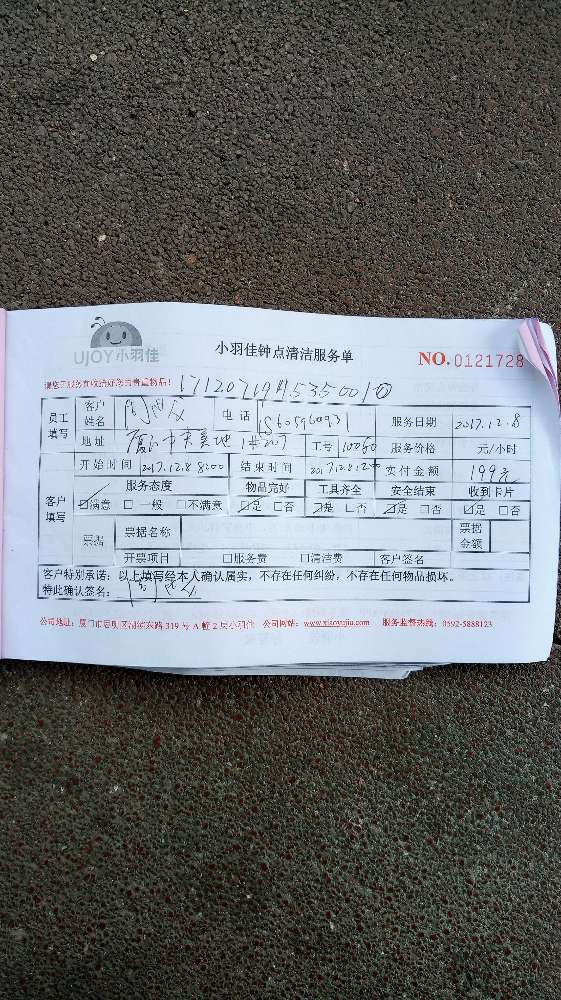 UJOY小羽佳
小羽佳钟点清洁服务单
NO.0121728
员工填写 客户姓名 电话 15605960931 服务日期 2017.12.8
地址 工号 10080 服务价格 元/小时
开始时间 2017.12.8 8:00 结束时间 2017.12.8 12:00 实付金额 199元
客户填写 服务态度 物品完好 工具齐全 安全结束 收到卡片
☑满意 □一般 □不满意 ☑是 □否 ☑是 □否 ☑是 □否 ☑是 □否
票据 票据名称 票据金额
开票项目 □服务费 □清洁费 客户签名
客户特别承诺：以上填写经本人确认属实，不存在任何纠纷，不存在任何物品损坏。
特此确认签名：
公司地址：厦门市思明区湖滨东路319号A幢2层小羽佳 公司网站：www.xiaoyujia.com 服务监督热线：0592-5888123